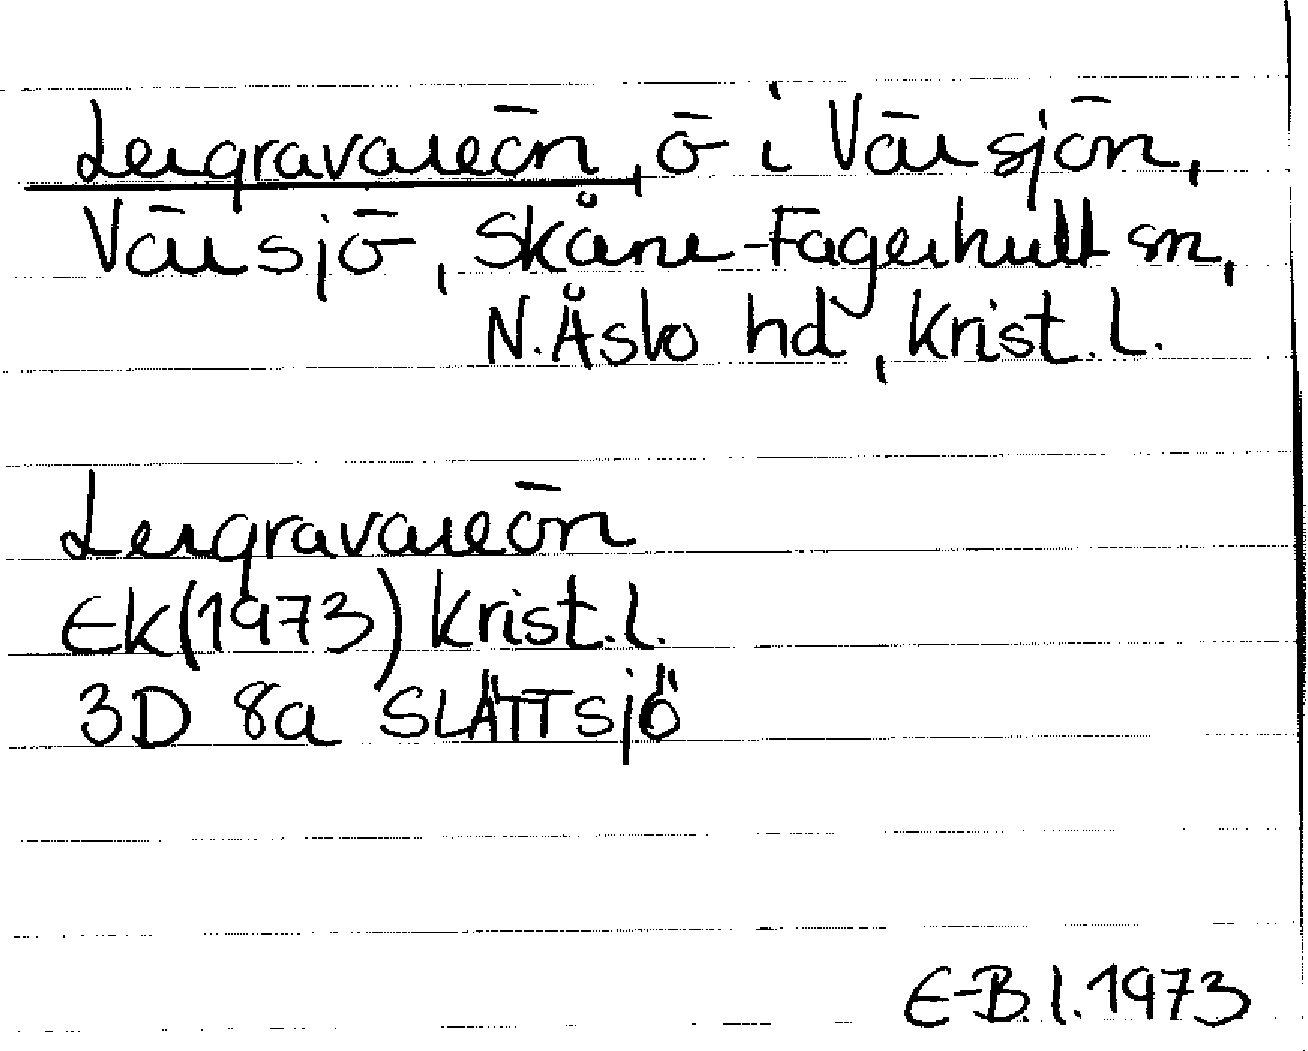 Lergravareön, ö i Värsjön,
Värsjö, Skåne-Fagerhult sn,
N. Åsbo hd, Krist. l.
Lergravareön
EK (1973) Krist. l.
3D 8a SLÄTTSjÖ
E-B. l. 1973